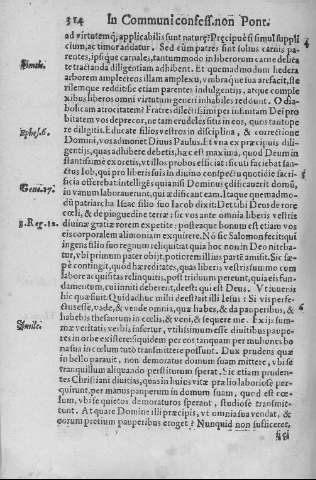 314 In Communi confess. non Pont.
ad virtutemq; applicabilis sunt naturę? Pręcipuè si simul suppli
cium, ac timor addatur. Sed cùm patres sint solius carnis pa-
rentes, ipsiq́; carnales, tantummodo in liberorum carne debca
Simile.
te tractanda diligentiam adhibent. Et quemadmodum hedera
arborem amplectens illam amplexu, vmbraque sua arefacit, ste
rilemque reddit: sic etiam parentes indulgentijs, atque comple
xibus liberos omni virtutum generi inhabiles reddunt. O dia-
bolicam atrocitatem! Fratres dilectissimi per infinitam Dei pro
bitatem vos deprecor, ne tam crudeles sitis in eos, quos tantope
Ephes. 6.
re diligitis. Educate filios vestros in disciplina, & correctione
Domini, vos admonet Diuus Paulus. Et vna ex pręcipuis dili-
gentijs, quas adhibere debetis, hæc est maxima, quod Deum in
stantissimè exoretis, vt illos probos efficiat: sicuti faciebat san-
ctus Iob, qui pro liberis suis in diuino conspectu quotidie sacri-
ficia offerebat: intelligés quia nisi Dominus ędificauerit domū,
Gene. 27.
in vanum laborauerunt, qui ædificant eam. Itaque quemadmo-
dū patriarcha Isaac filio suo Iacob dixit: Det tibi Deus de rore
cœli, & de pinguedine terræ: sic vos ante omnia liberis vestris
3. Reg. 12.
diuinæ gratiæ rorem expetite: posteaque bonum est etiam vos
eis corporalem alimoniam exquirere. Nō sic Salomon fecit: qui
ingens filio suo regnum reliquit: at quia hoc non in Deo niteba-
tur, vbi primum pater obijt, potiorem illius partē amisit. Sic sæ-
pè contingit, quod hæreditates, quas liberis vestris summo cum
labore acquistas relinquitis, post triduum pereunt, quia eis fun-
damentum, cui inniti deberent, deest: qui est Deus. Vt iuuenis
hic quæsiuit. Quid adhuc mihi deest? ait illi Iesus: Si vis perfe-
ctus esse, vade, & vende omnia, quæ habes, & da pauperibus, &
habebis thesaurum in cœlis, & veni, & sequere me. Ex ijs sum-
Simile.
mæ veritatis verbis infertur, vtilissimum esse diuitibus paupe-
res in orbe existere: siquidem per eos tanquam per muluones bo
na sua in cœlum tutò transmittere possunt. Dux prudens quæ
in bello parauit, non demoratur domum suam mittere, vbi se
tranquillum aliquando perfiturum sperat. Sic etiam pruden-
tes Christiani diuitias, quas in huius vitæ prælio laboriosè per-
quirunt, per manus pauperum in domum suam, quod est cœ-
lum, vbi se quietos demoraturos sperant, studiosè transmit-
tunt. At quare Domine illi præcipis, vt omnia sua vendat, &
eorum pretium pauperibus eroget? Nunquid non sufficeret,